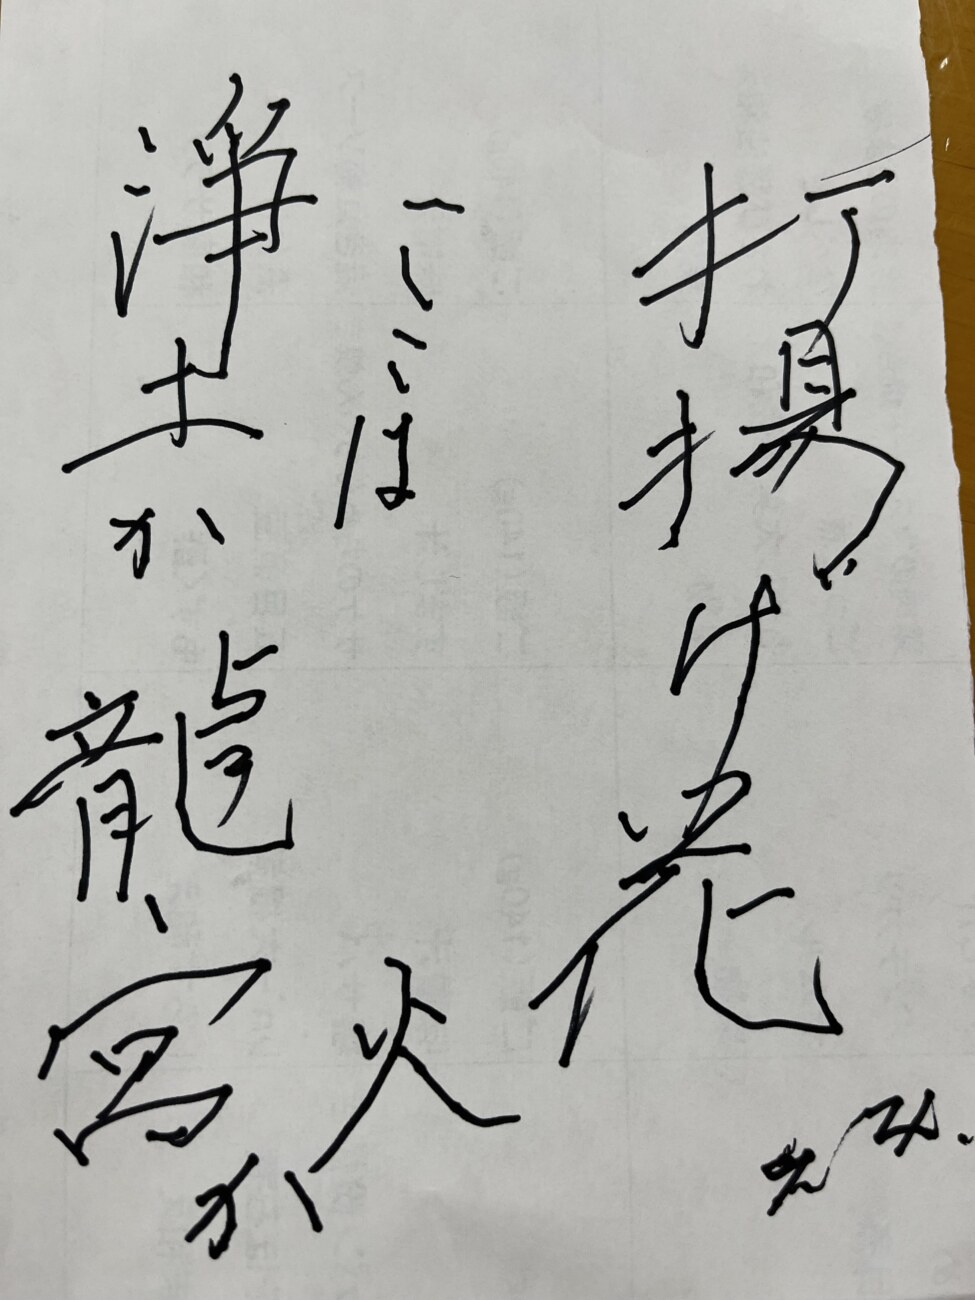 打揚げ花
火
ここは
浄土か龍宮か